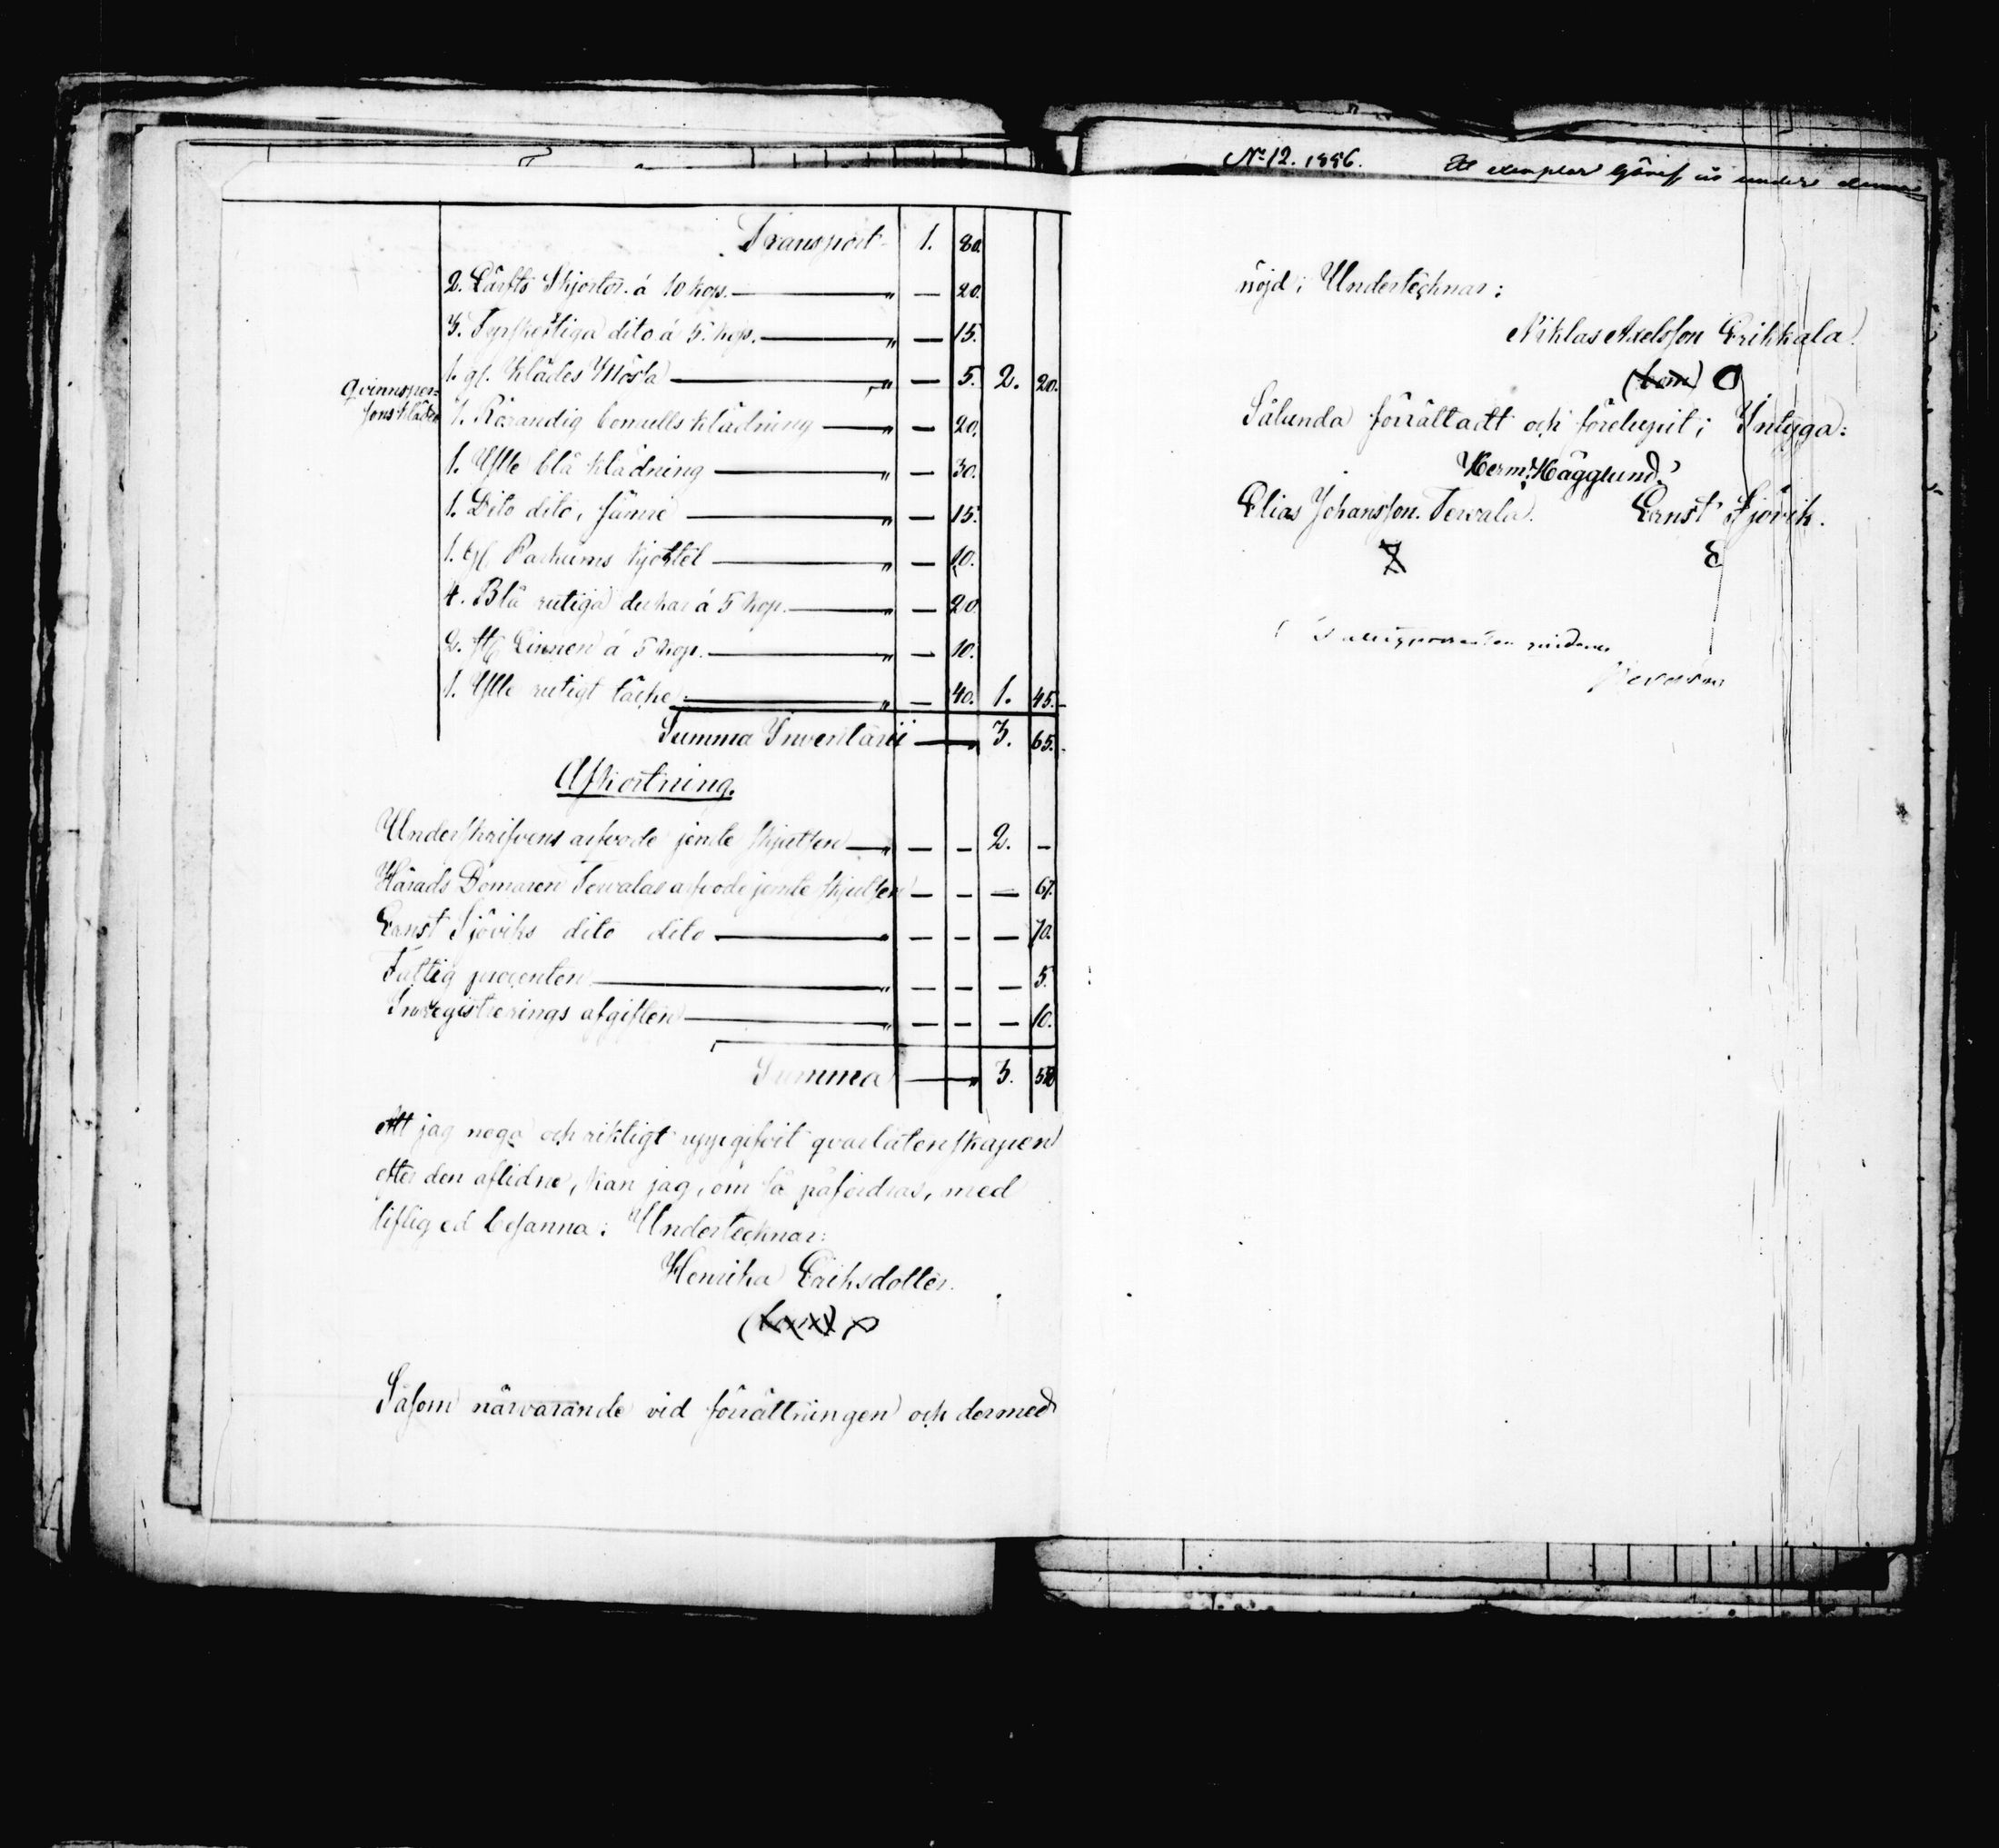 Transport 1. 80.
2. Lärfts Skjortor á 10 kop. " — 20.
3. dito á 5. kop. " — 15.
1. gl. Klädes Mössa " — 5. 2. 20.
Qvinnsper=
sons kläder
1. Rörandig bomulls klädning " — 20.
1. Ylle blå klädning " — 30.
1. Dito dito, sämre " — 15.
1. gl. kjortel " — 10.
4. Blå rutiga dukar á 5 kop. " — 20.
2. st. Linnen á 5 kop. " — 10.
1. Ylle rutigt täcke " — 40. 1. 45.
Summa Inventarii — " 3. 65.
Afkortning.
Underskrifvens arfvode jemte skjutsen " — — 2. —
Härads Domaren Tervalas arfvode jemte skjutsen — — — 67.
Ernst Sjöviks dito dito " — — — 70.
Fattig procenten " — — — 5.
Inregistrerings afgiften " — — — 10.
Summa — " 3.
Att jag noga och riktigt uppgifvit qvarlåtenskapen
efter den aflidne, kan jag, om så påfordras, med
liflig ed besanna; Undertecknar:
Henrika Eriksdotter.
Såsom närvarande vid förrättningen och dermed
No 12. 1886.
Et exemplar
nöjd; Undertecknar:
Niklas Axelsson Erikkala
(bom)
Sålunda förrättadt och förelupit; Intyga:
Herm. Hägglund.
Elias Johansson Tervala. Ernst Sjövik.
Fattigprocenten